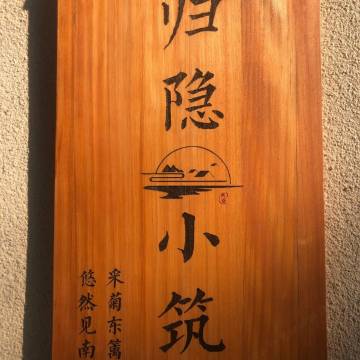 归隐小筑
采菊东篱
悠然见南